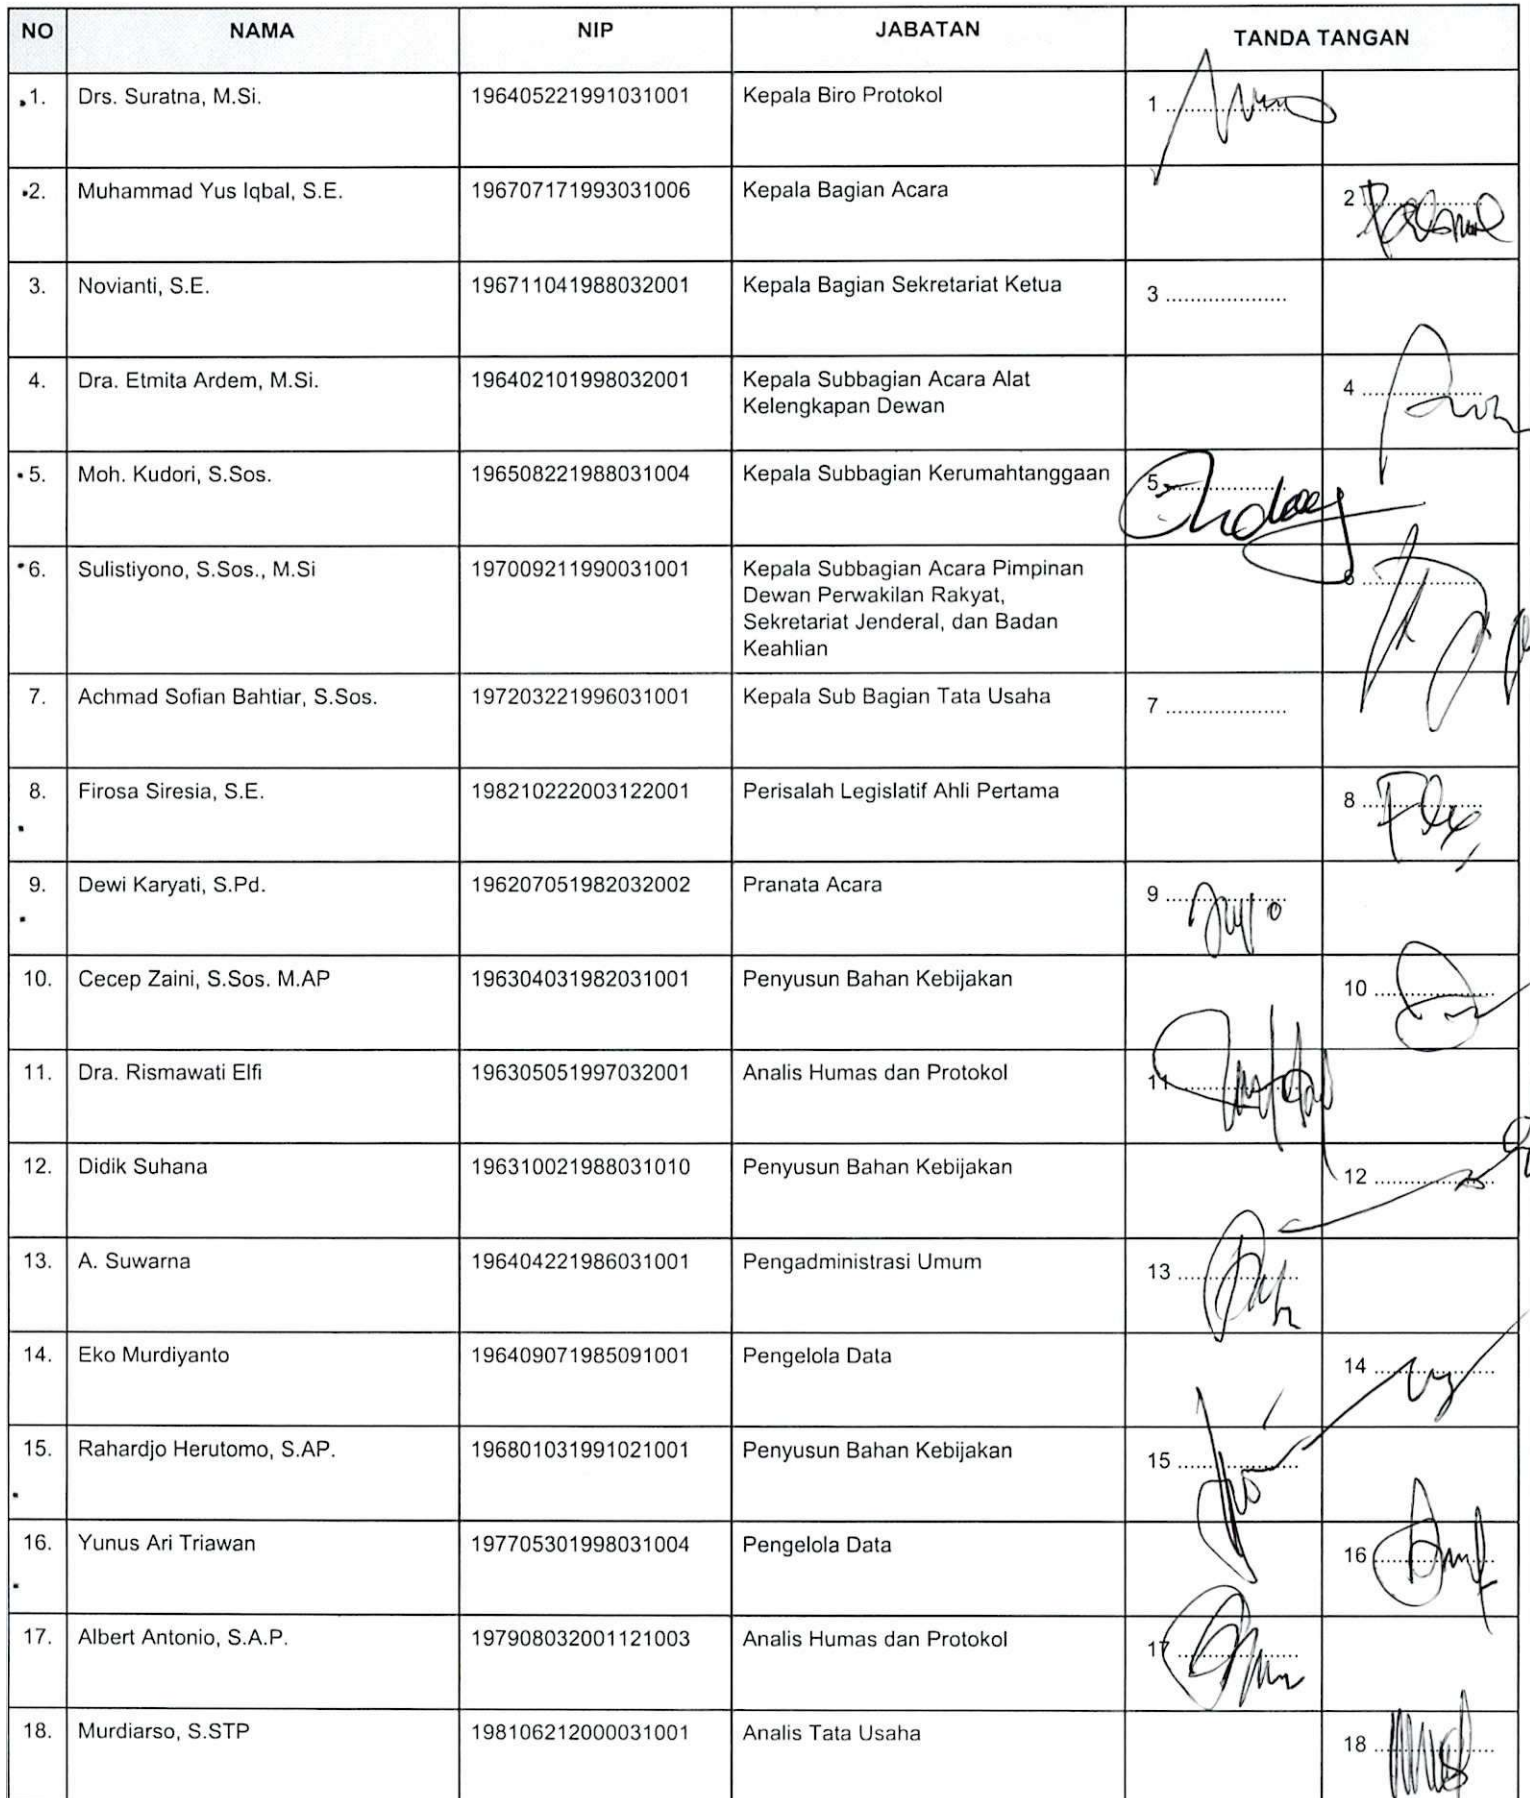 NO NAMA NIP JABATAN TANDA TANGAN
1. Drs. Suratna, M.Si. 196405221991031001 Kepala Biro Protokol 1 ....................
2. Muhammad Yus Iqbal, S.E. 196707171993031006 Kepala Bagian Acara 2 ....................
3. Novianti, S.E. 196711041988032001 Kepala Bagian Sekretariat Ketua 3 ....................
4. Dra. Etmita Ardem, M.Si. 196402101998032001 Kepala Subbagian Acara Alat 4 ....................
Kelengkapan Dewan
5. Moh. Kudori, S.Sos. 196508221988031004 Kepala Subbagian Kerumahtanggaan 5 ....................
6. Sulistiyono, S.Sos., M.Si 197009211990031001 Kepala Subbagian Acara Pimpinan 6 ....................
Dewan Perwakilan Rakyat,
Sekretariat Jenderal, dan Badan
Keahlian
7. Achmad Sofian Bahtiar, S.Sos. 197203221996031001 Kepala Sub Bagian Tata Usaha 7 ....................
8. Firosa Siresia, S.E. 198210222003122001 Perisalah Legislatif Ahli Pertama 8 ....................
9. Dewi Karyati, S.Pd. 196207051982032002 Pranata Acara 9 ....................
10. Cecep Zaini, S.Sos. M.AP 196304031982031001 Penyusun Bahan Kebijakan 10 ....................
11. Dra. Rismawati Elfi 196305051997032001 Analis Humas dan Protokol 11 ....................
12. Didik Suhana 196310021988031010 Penyusun Bahan Kebijakan 12 ....................
13. A. Suwarna 196404221986031001 Pengadministrasi Umum 13 ....................
14. Eko Murdiyanto 196409071985091001 Pengelola Data 14 ....................
15. Rahardjo Herutomo, S.AP. 196801031991021001 Penyusun Bahan Kebijakan 15 ....................
16. Yunus Ari Triawan 197705301998031004 Pengelola Data 16 ....................
17. Albert Antonio, S.A.P. 197908032001121003 Analis Humas dan Protokol 17 ....................
18. Murdiarso, S.STP 198106212000031001 Analis Tata Usaha 18 ....................